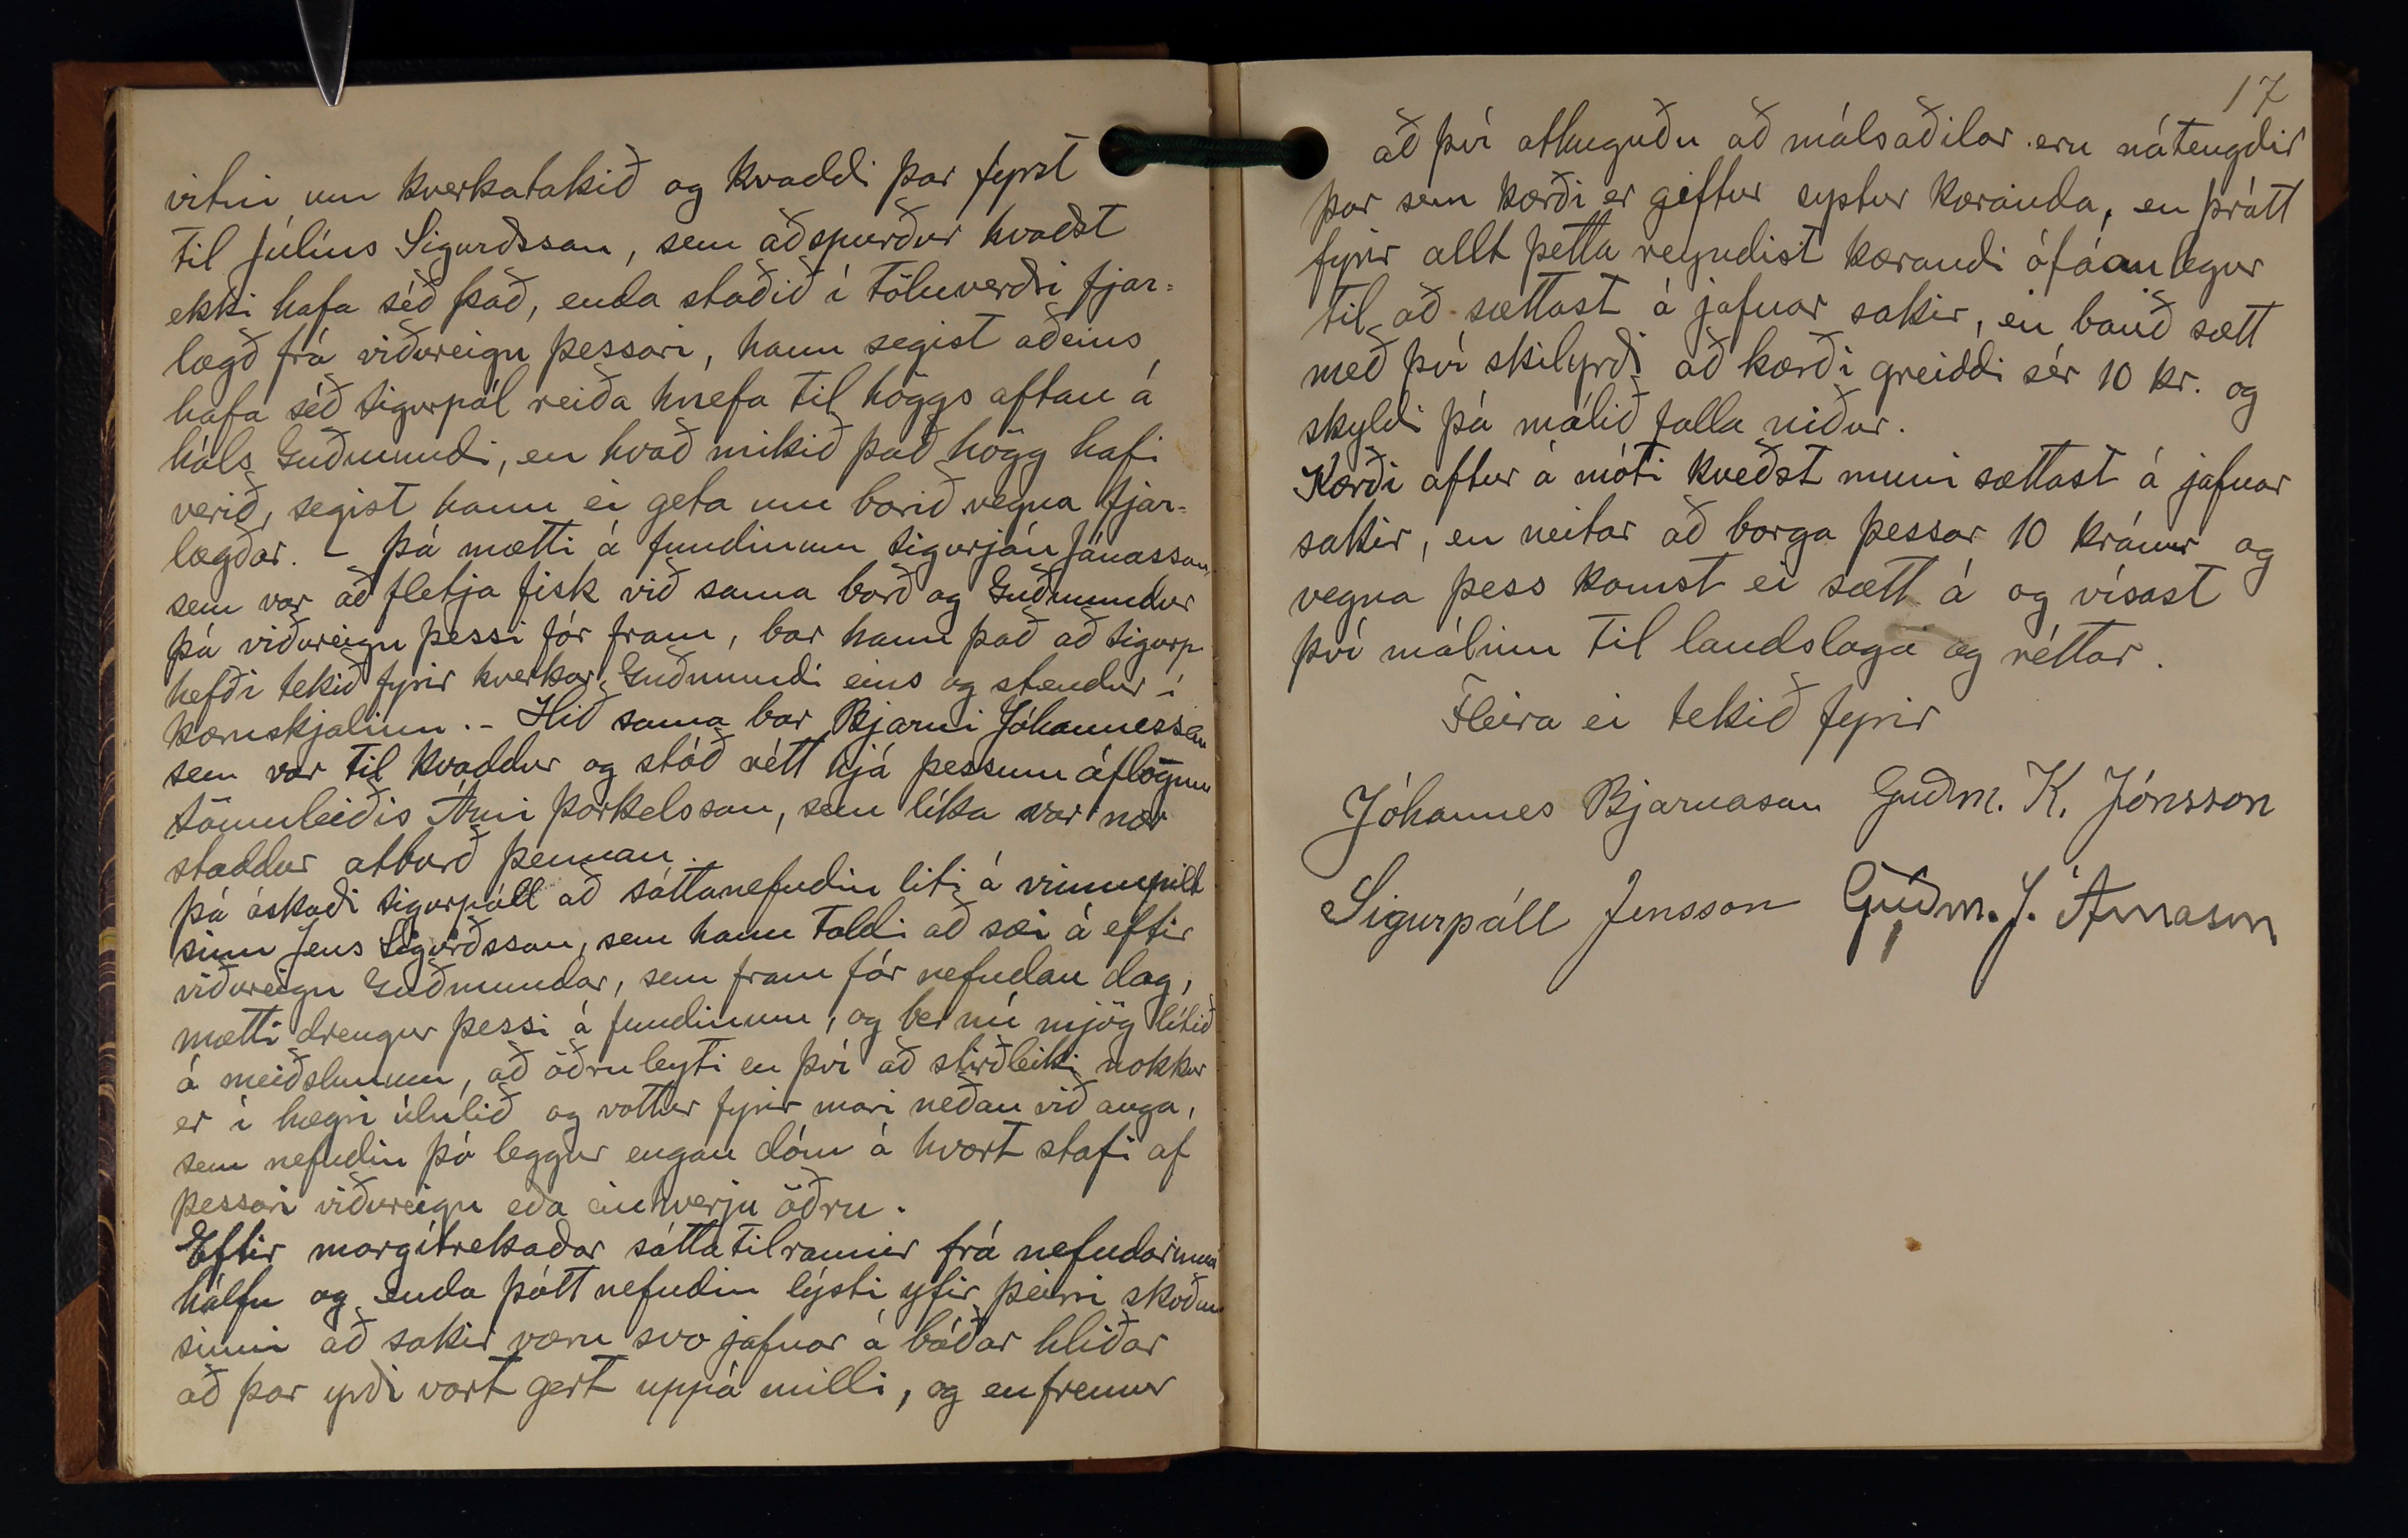 vitni um kverkatakið og kvaddi þar fyrst
til Júlíus Sigurðsson, sem aðspurður kvaðst
ekki hafa séð það, enda staðið í töluverðri fjar=
lægð frá viðureign þessari, hann segist aðeins
hafa séð Sigurpál reiða hnefa til höggs aftan á
háls Guðmundi, en hvað mikið það högg hafi
verið, segist hann ei geta um borið vegna fjar=
lægðar. - Þá mætti á fundinum Sigurján Jónasson,
sem var að fletja fisk við sama borð og Guðmundur
þá viðureign þessi fór fram, bar hann það að Sigurp.
hefði tekið fyrir kverkar Guðmundi eins og stendur í
kæruskjalinu. - Hið sama bar Bjarni Jóhannesson
sem var til kvaddur og stóð rétt hjá þessum áflogum
sömuleiðis Árni Þorkelsson, sem líka var nær
staddur atburð þennan.
Þá óskaði Sigurpáll að sáttanefndin liti á vinnupilt
sinn Jens Sigurðsson, sem hann taldi að sæi á eftir
viðureign Guðmundar, sem fram fór nefndan dag,
mætti drengur þessi á fundinum, og ber nú mjög lítið
á meiðslunum, að öðru leyti en því að stirðleiki nokkur
er í hægri úlnlið og vottur fyrir mari neðan við auga,
sem nefndin þó leggur engan dóm á hvort stafi af
þessari viðureign eða einhverju öðru.
Eftir margítrekaðar sáttatilraunir frá nefndarinnar
hálfu og enda þótt nefndin lýsti yfir þeirri skoðun
sinni að sakir væru svo jafnar á báðar hliðar
að þar yrði vart gert uppá milli, og enfremur
17
að því athuguðu að málsaðilar eru nátengdir
þar sem kærði er giftur systur kæranda, en þrátt
fyrir allt þetta reyndist kærandi ófáanlegur
til að sættast á jafnar sakir, en bauð sætt
með því skilyrði að kærði greiddi sér 10 kr. og
skyldi þá málið falla niður.
Kærði aftur á móti kveðst muni sættast á jafnar
sakir, en neitar að borga þessar 10 krónur og
vegna þess komst ei sætt á og vísast
því málinu til landslaga og réttar.
Fleira ei tekið fyrir
Jóhannes Bjarnason Guðm. K. Jónsson
Sigurpáll Jensson Guðm. J. Árnason